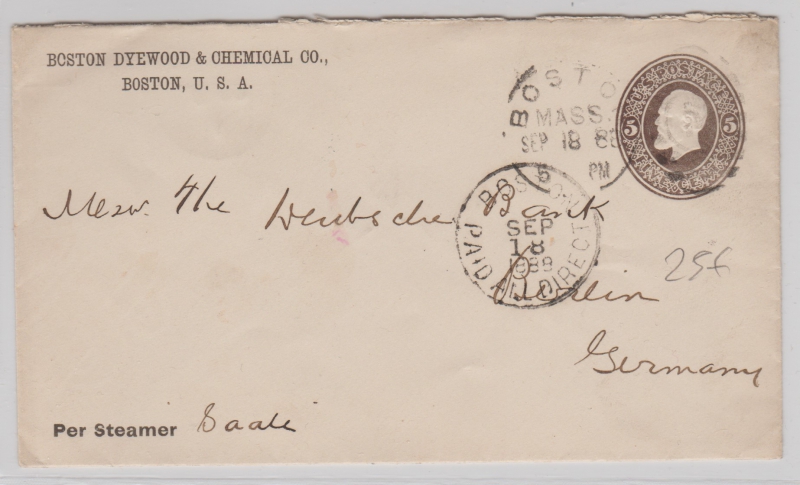 BOSTON DYEWOOD & CHEMICAL CO.,
BOSTON, U. S. A.
BOSTO
MASS.
SEP 18 88
5 PM
U.S. POSTAGE
5 5
Messrs. The Deutsche Bank
BOSTON
SEP
18
1888
PAID ALL DIRECT
Berlin
25f
Germany
Per Steamer Saale